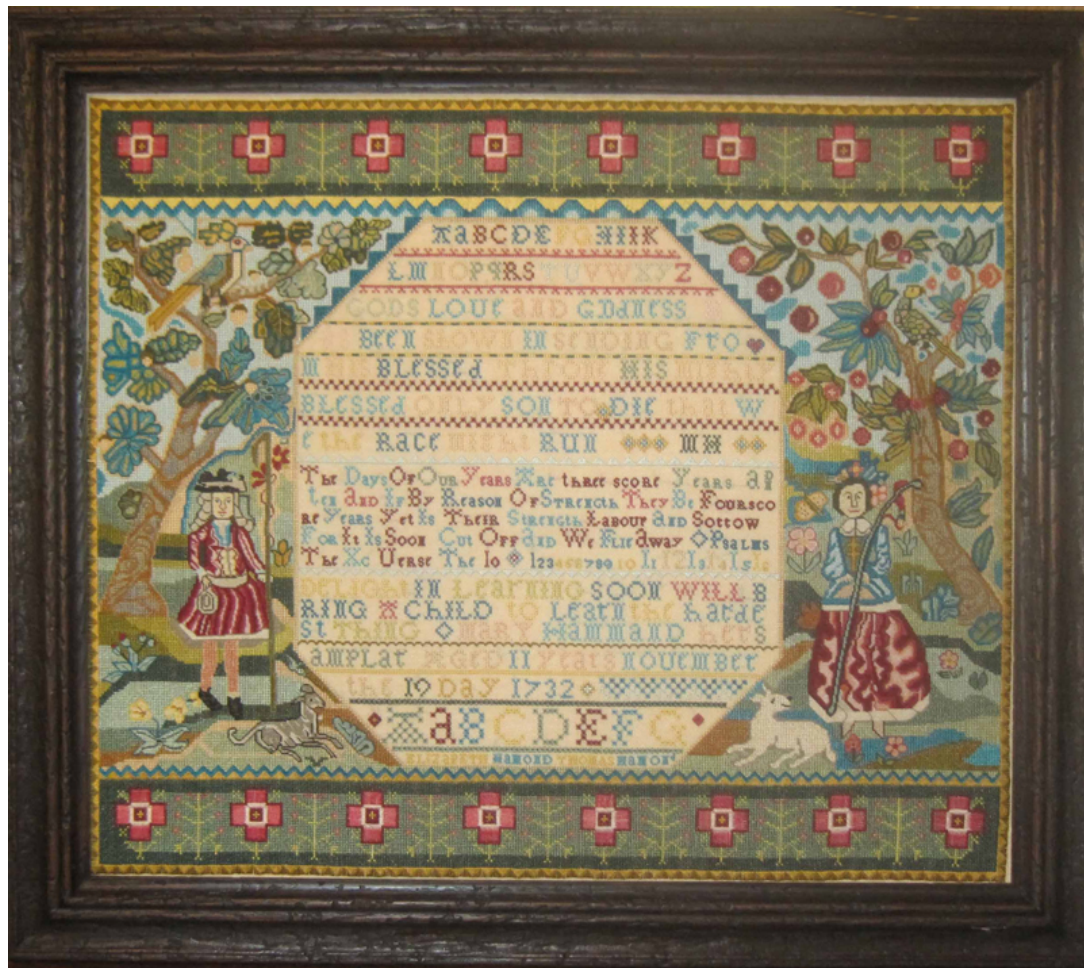 AaBCDEFGHIK
LMNOPqRSTUVWXYZ
GODS LOUE AND GOdNESS
BEEN SHOWN IN SENDING FRO
M BLESSEd THRONE HIS
BLESSEd ONLY SON TO DIE that W
e the RACE MIGHT RUN MH
The Days Of Our Years Are three score Years aN
ten and If By Reason Of Strength They Be Foursco
re Years Yet Is Their Strength Labour and Sorrow
For It Is Soon Cut Off and We Flie away Psalms
The Xc Uerse The 10 123456789 10 11 12 13 14 15 1
DELIGHT IN LEarNING SOON WILL B
RING A CHILD to LEarN the harde
st THING mary Hammand hers
amplar AGED 11 Years NOUEMBER
the 19 Day 1732
AaBCDEFG
ELIZABETH HAMOND THOMAS HAMON